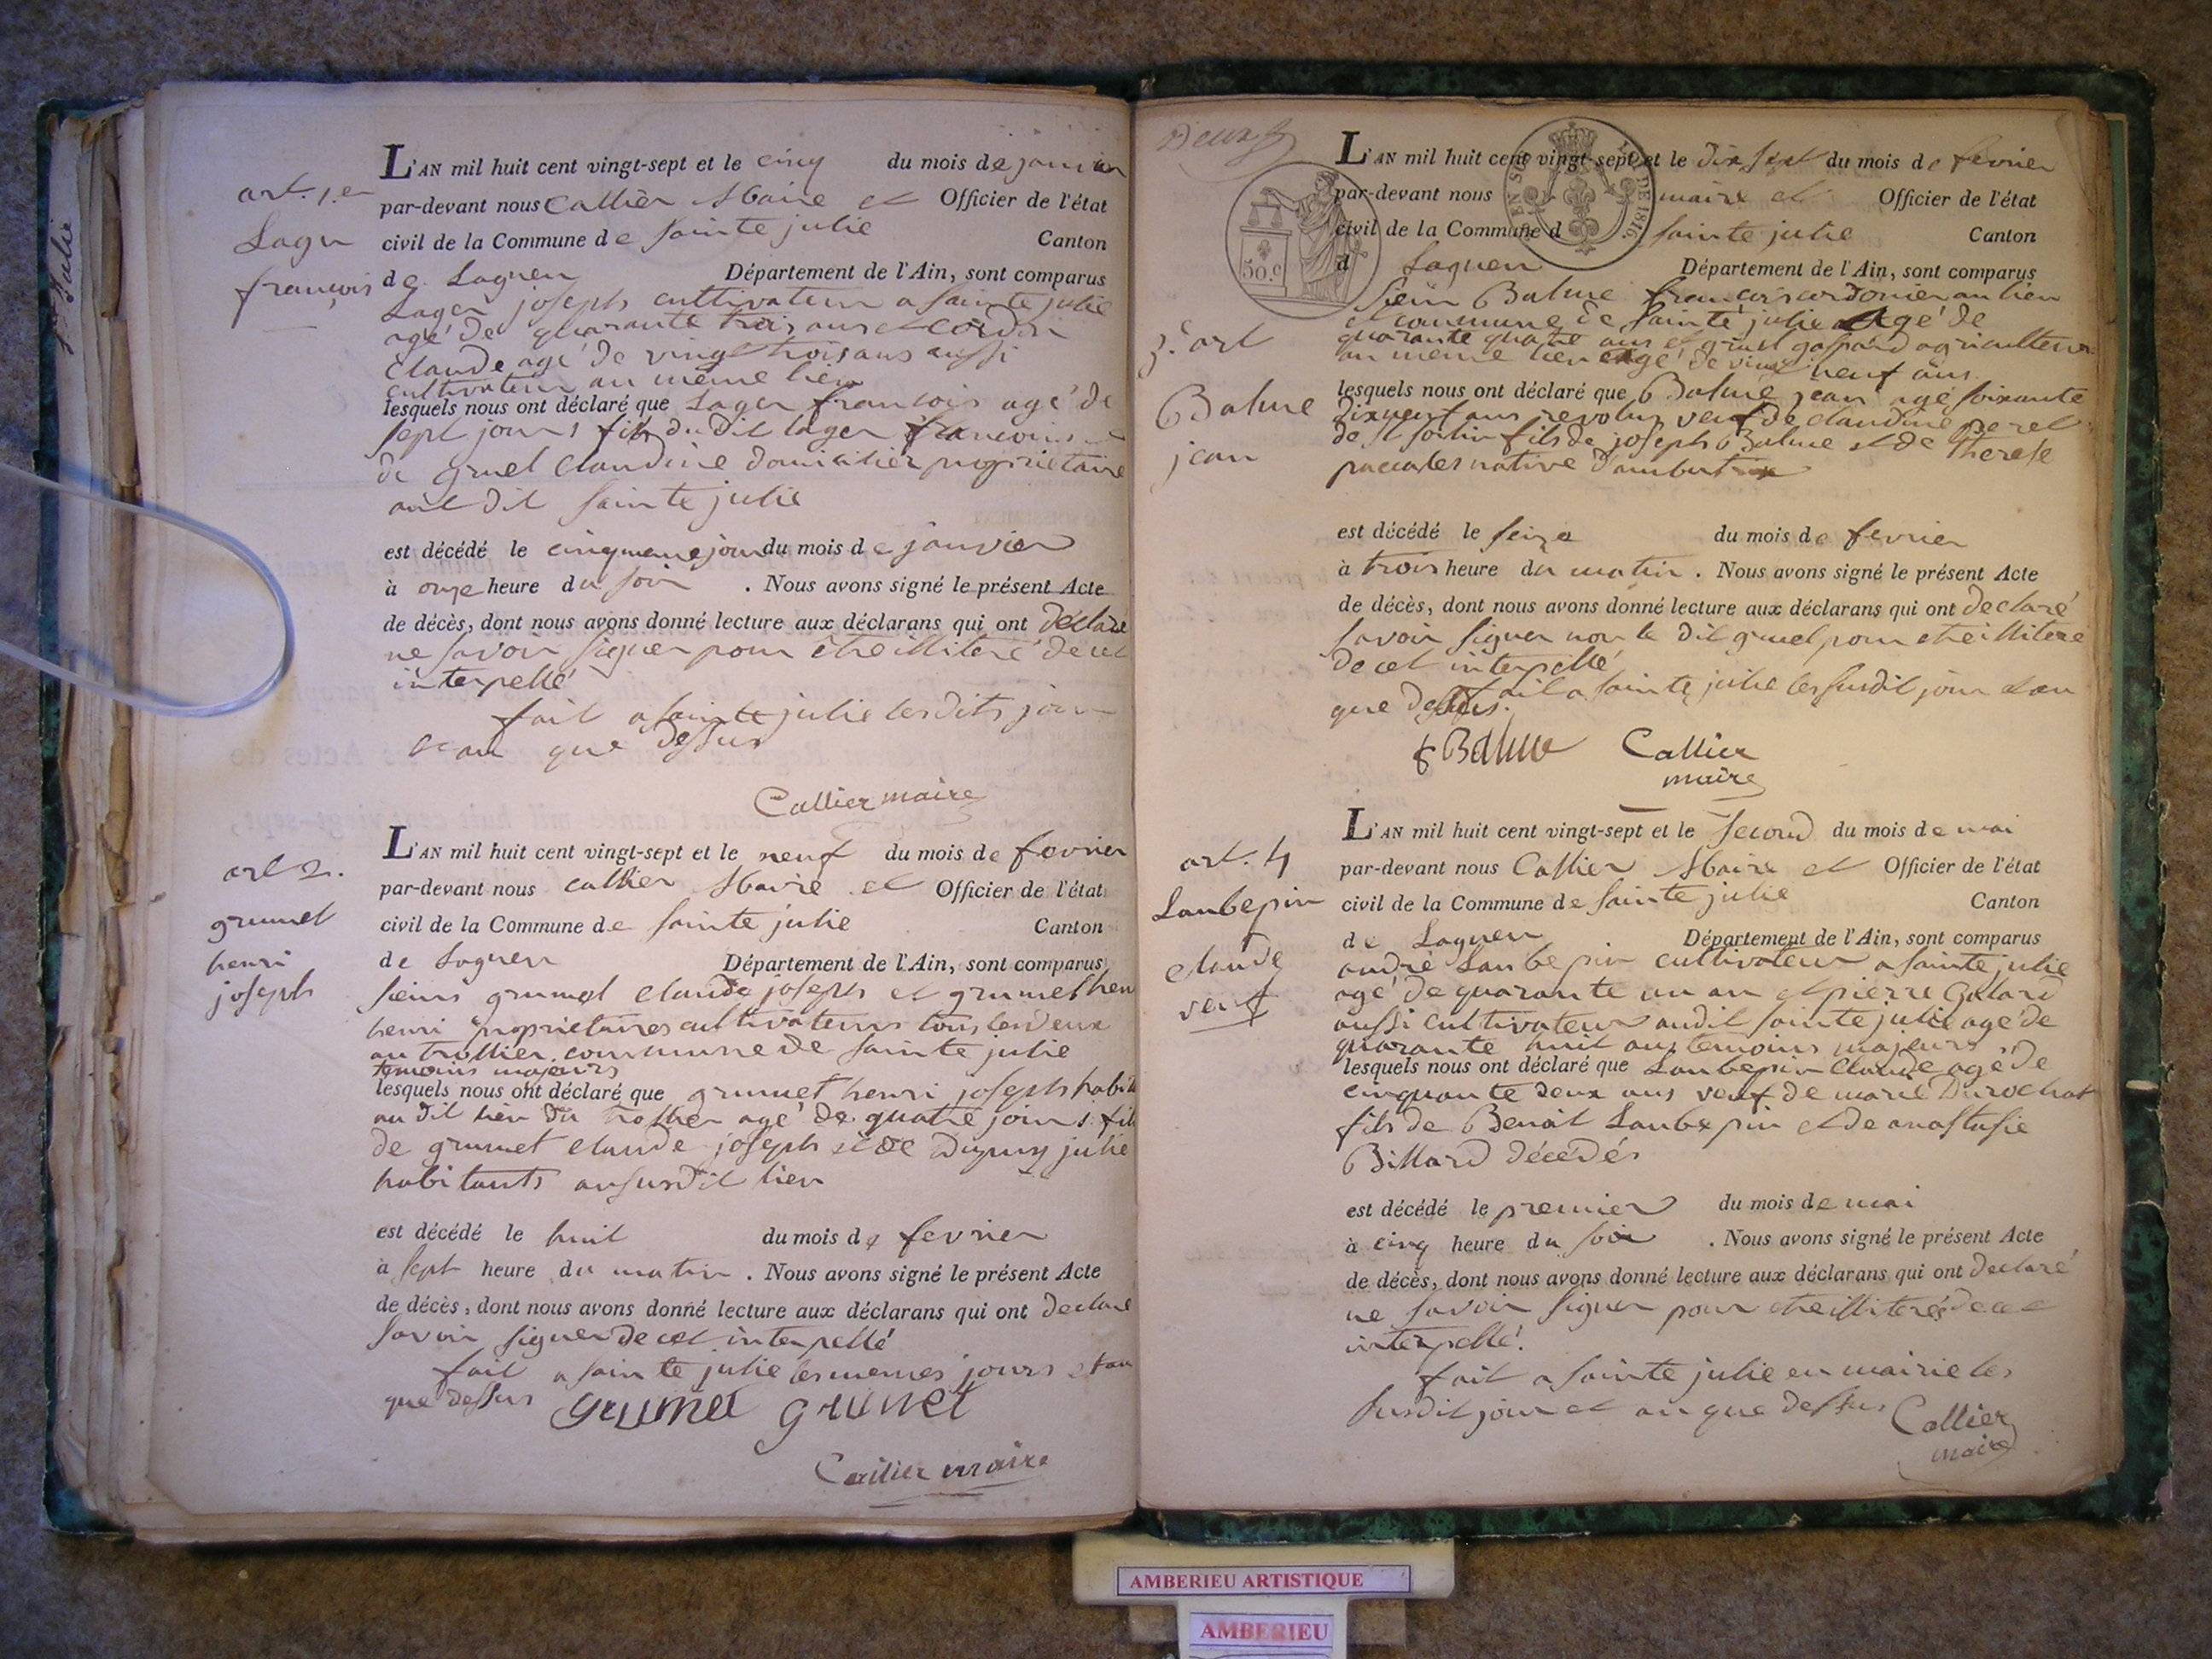 Ste Julie
L'AN mil huit cent vingt-sept et le cinq du mois de janvier
art. 1.er
par-devant nous Callier Maire et Officier de l'état
Lager
civil de la Commune de Sainte julie Canton
françois
de Lagneu Département de l'Ain, sont comparus
Lager joseph cultivateur a Sainte julie
agé de quarante trois ans et cordon
Claude agé de vingt trois ans aussi
cultivateur au même lieu
lesquels nous ont déclaré que Lager francois agé de
sept jours fils du dit lager francois et
de gruel Claudine domicilier proprietaire
audit Sainte julie
est décédé le cinquieme jour du mois de janvier
à onze heure du soir . Nous avons signé le présent Acte
de décès, dont nous avons donné lecture aux déclarans qui ont déclaré
ne savoir signer pour être illiteré de cet
interpellé
fait a Sainte julie lesdits jour
et an que dessus
Callier maire
L'AN mil huit cent vingt-sept et le neuf du mois de fevrier
art 2.
par-devant nous Callier Maire et Officier de l'état
grumet
civil de la Commune de Sainte julie Canton
henri
de Lagneu Département de l'Ain, sont comparus
joseph
sieurs grumet claude joseph et grumet hen
henri proprietaires cultivateurs tous les deux
au trollier commune de Sainte julie
temoins majeurs
lesquels nous ont déclaré que grumet henri joseph habit
au dit lieu du trollier agé de quatre jours fils
de grumet claude joseph et de Dupuy julie
habitants au susdit lieu
est décédé le huit du mois de fevrier
à sept heure du matin . Nous avons signé le présent Acte
de décès, dont nous avons donné lecture aux déclarans qui ont declaré
savoir signer de cet interpellé
fait a Sainte julie les memes jours et an
que dessus grumet grumet
Callier maire
Deux
L'AN mil huit cent vingt-sept et le dix sept du mois de fevrier
par-devant nous maire et Officier de l'état
civil de la Commune d Sainte julie Canton
d Lagneu Département de l'Ain, sont comparus
50.c
DE 1816.
Sieur Balme francois cordonier au lieu
et commune de Sainte julie agé de
3.e art
quarante quatre ans et gruel gaspard agriculteur
au même lieu agé de vingt neuf ans
Balme
jean
lesquels nous ont déclaré que Balme jean agé soixante
dixneuf ans revolus veuf de claudine perel
de St Sorlin fils de joseph Balme et de Therese
paccalet native d'ambutrix
est décédé le seize du mois de fevrier
à trois heure du matin . Nous avons signé le présent Acte
de décès, dont nous avons donné lecture aux déclarans qui ont declaré
savoir signer non le dit gruel pour etre illiteré
de cet interpellé
fait a Sainte julie les susdit jour et an
que dessus.
f Balme Callier
maire
L'AN mil huit cent vingt-sept et le second du mois de mai
art. 4
par-devant nous Callier Maire et Officier de l'état
Laubepin
civil de la Commune de Sainte julie Canton
claude
de Lagneu Département de l'Ain, sont comparus
veuf
andré Laubepin cultivateur a Sainte julie
agé de quarante un an et pierre Galard
aussi cultivateur audit Sainte julie agé de
quarante huit ans temoins majeurs
lesquels nous ont déclaré que Laubepin Claude agé de
cinquante deux ans veuf de marie Durochat
fils de Benoit Laubepin et de anastasie
Billard décédés
est décédé le premier du mois de mai
à cinq heure du soir . Nous avons signé le présent Acte
de décès, dont nous avons donné lecture aux déclarans qui ont declaré
ne savoir signer pour etre illiterés de cet
interpellé.
fait a Sainte julie en mairie les
susdit jour et an que dessus Callier
maire
AMBERIEU ARTISTIQUE
AMBERIEU